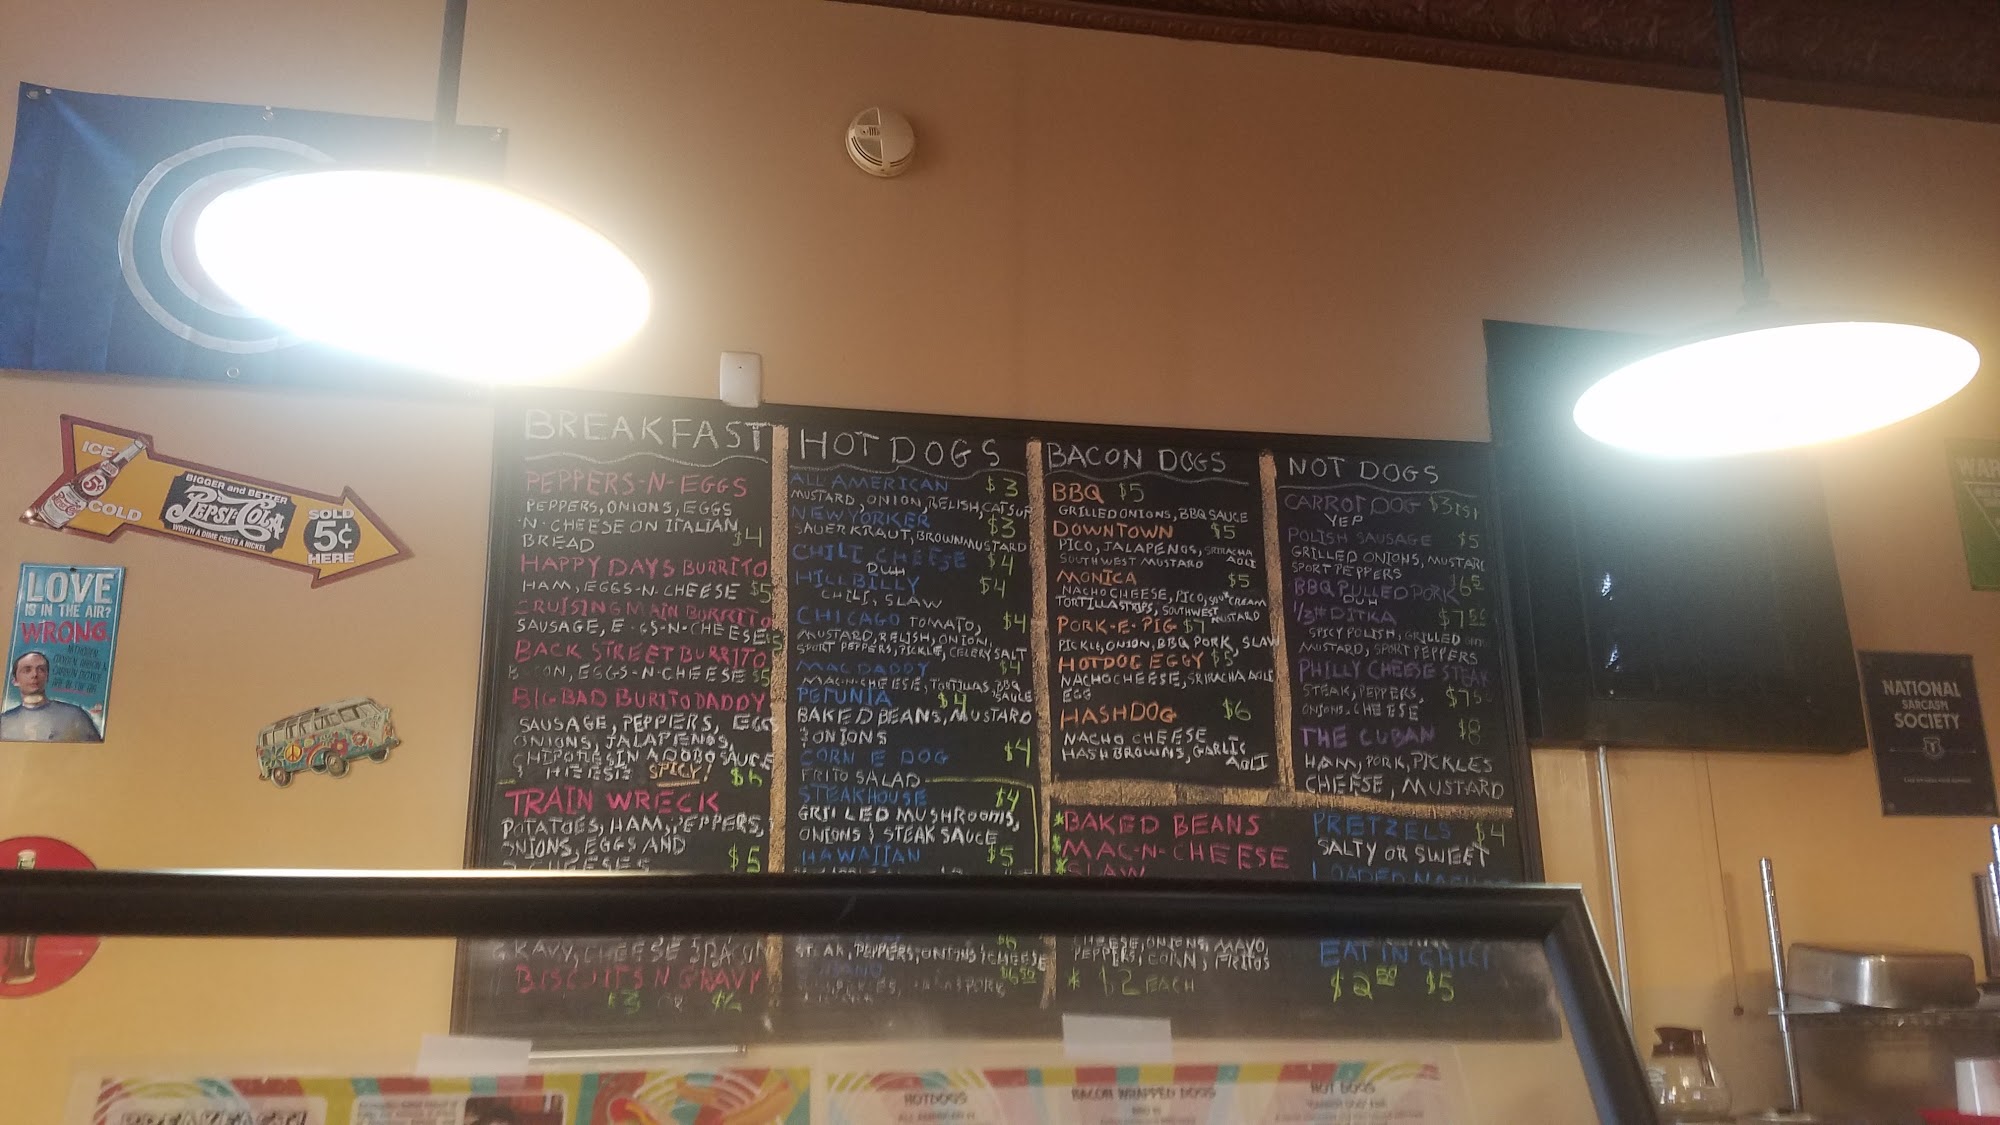 ICE
COLD
5¢
BIGGER and BETTER
PEPSI-COLA
WORTH A DIME COSTS A NICKEL
SOLD
5¢
HERE
LOVE
IS IN THE AIR?
WRONG.
NATIONAL
SARCASM
SOCIETY
BREAKFAST
PEPPERS-N-EGGS
PEPPERS, ONIONS, EGGS
-N-CHEESE ON ITALIAN
BREAD $4
HAPPY DAYS BURRITO
HAM, EGGS-N-CHEESE $5
CRUISING MAIN BURRITO
SAUSAGE, E GS-N-CHEESE $5
BACK STREET BURRITO
B CON, EGGS-N-CHEESE $5
BIG BAD BURITO DADDY
SAUSAGE, PEPPERS, EGG
ONIONS, JALAPENOS,
CHIPOTLES IN ADOBO SAUCE
CHEESE SPICY!
TRAIN WRECK
POTATOES, HAM, PEPPERS,
ONIONS, EGGS AND
$5
GRAVY, CHEESE & BACON
BISCUITS N GRAVY
$3 OR
HOT DOGS
ALL AMERICAN $3
MUSTARD, ONION, RELISH, CATSUP
NEWYORKER $3
SAUERKRAUT, BROWN MUSTARD
CHILI CHEESE $4
DUH
HILLBILLY $4
CHILI, SLAW
CHICAGO TOMATO, $4
MUSTARD, RELISH, ONION,
SPORT PEPPERS, PICKLE, CELERY SALT
MAC DADDY $4
MAC-N-CHEESE, TORTILLAS, BBQ SAUCE
PETUNIA $4
BAKED BEANS, MUSTARD
& ONIONS
CORN E DOG $4
FRITO SALAD
STEAKHOUSE $4
GRILLED MUSHROOMS,
ONIONS & STEAK SAUCE
HAWAIIAN $5
PEPPERS, ONIONS & CHEESE
BACON DOGS
BBQ $5
GRILLED ONIONS, BBQ SAUCE
DOWNTOWN $5
PICO, JALAPENOS, SRIRACHA AOLI
SOUTHWEST MUSTARD
MONICA $5
NACHO CHEESE, PICO, SOUR CREAM
TORTILLA STRIPS, SOUTHWEST MUSTARD
PORK-E-PIG $7
PICKLE, ONION, BBQ PORK, SLAW
HOTDOG EGGY $5
NACHO CHEESE, SRIRACHA AOLI
EGG
HASHDOG $6
NACHO CHEESE
HASHBROWNS, GARLIC AOLI
NOT DOGS
CARROT DOG
YEP
POLISH SAUSAGE $5
GRILLED ONIONS, MUSTARD
SPORT PEPPERS
BBQ PULLED PORK
DUH
1/3# DITKA $7.50
SPICY POLISH, GRILLED
MUSTARD, SPORT PEPPERS
PHILLY CHEESE STEAK
STEAK, PEPPERS, $7.50
ONIONS, CHEESE
THE CUBAN $8
HAM, PORK, PICKLES
CHEESE, MUSTARD
*BAKED BEANS
*MAC-N-CHEESE
*SLAW
CHEESE, ONIONS, MAYO,
PEPPERS, CORN, FRITOS
* $2 EACH
PRETZELS $4
SALTY OR SWEET
LOADED NACHOS
EAT IN CHILI
$2.50 $5
BREAKFAST!
HOTDOGS
ALL AMERICAN
BACON WRAPPED DOGS
HOT DOGS